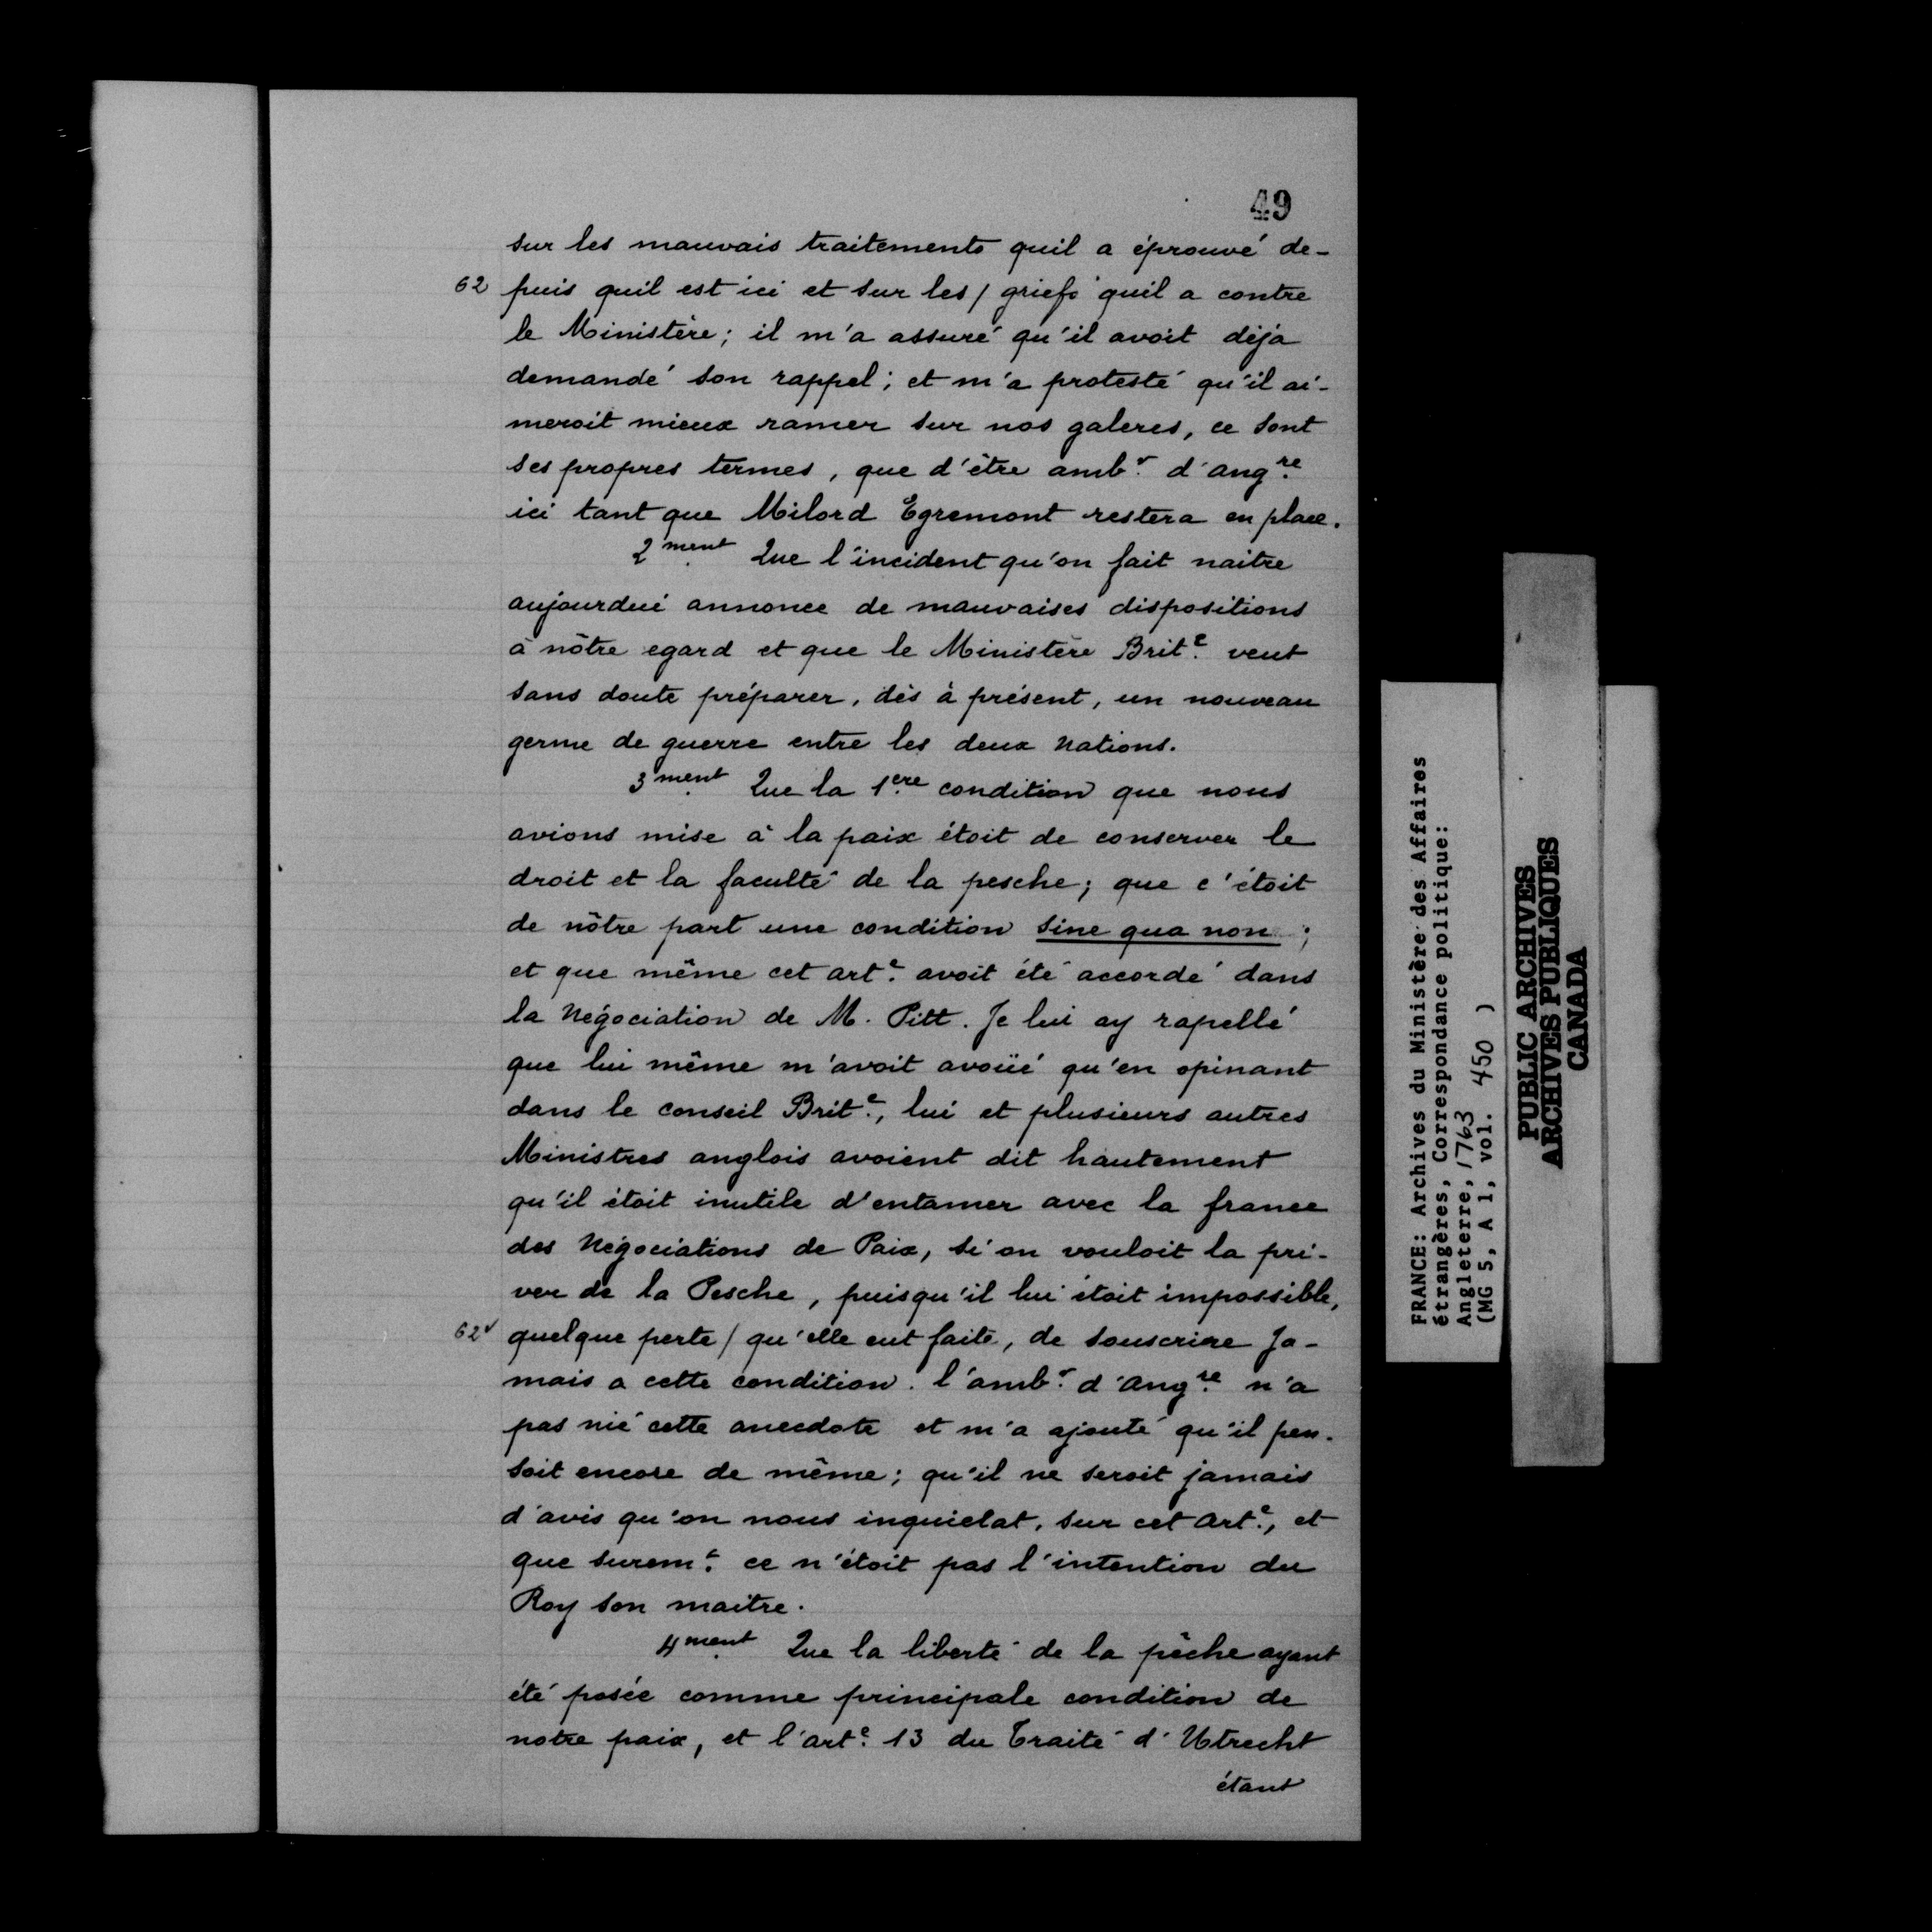 49
sur les mauvais traitements quil a éprouvé de-
62 puis quil est ici et sur les / griefs quil a contre
le Ministère; il m'a assuré qu'il avoit déja
demandé son rappel; et m'a protesté qu'il ai-
meroit mieux ramer sur nos galeres, ce sont
ses propres termes, que d'être ambʳ. d'angʳᵉ.
ici tant que Milord Egremont restera en place.
2ᵐᵉⁿᵗ. Que l'incident qu'on fait naitre
aujourdui annonce de mauvaises dispositions
à nôtre egard et que le Ministère Britᵉ. veut
sans doute préparer, dès à présent, un nouveau
germe de guerre entre les deux Nations.
3ᵐᵉⁿᵗ. Que la 1ᵉʳᵉ. condition que nous
avions mise à la paix étoit de conserver le
droit et la faculté de la pesche; que c'étoit
de nôtre part une condition sine qua non;
et que même cet artᵉ. avoit été accordé dans
la Négociation de M. Pitt. Je lui ay rapellé
que lui même m'avoit avoüé qu'en opinant
dans le conseil Britᵉ., lui et plusieurs autres
Ministres anglois avoient dit hautement
qu'il étoit inutile d'entamer avec la france
des Négociations de Paix, si on vouloit la pri-
ver de la Pesche, puisqu'il lui étoit impossible,
62ᵛ quelque perte / qu'elle eut faite, de souscrire Ja-
mais a cette condition. l'ambʳ. d'Angʳᵉ. n'a
pas nié cette anecdote et m'a ajouté qu'il pen-
soit encore de même; qu'il ne seroit jamais
d'avis qu'on nous inquietat, sur cet Artᵉ., et
que suremᵗ. ce n'étoit pas l'intention du
Roy son maitre.
4ᵐᵉⁿᵗ. Que la liberté de la pêche ayant
été posée comme principale condition de
notre paix, et l'artᵉ. 13 du Traité d'Utrecht
étant
FRANCE: Archives du Ministère des Affaires
étrangères, Correspondance politique:
Angleterre, 1763
(MG 5, A 1, vol. 450 )
PUBLIC ARCHIVES
ARCHIVES PUBLIQUES
CANADA